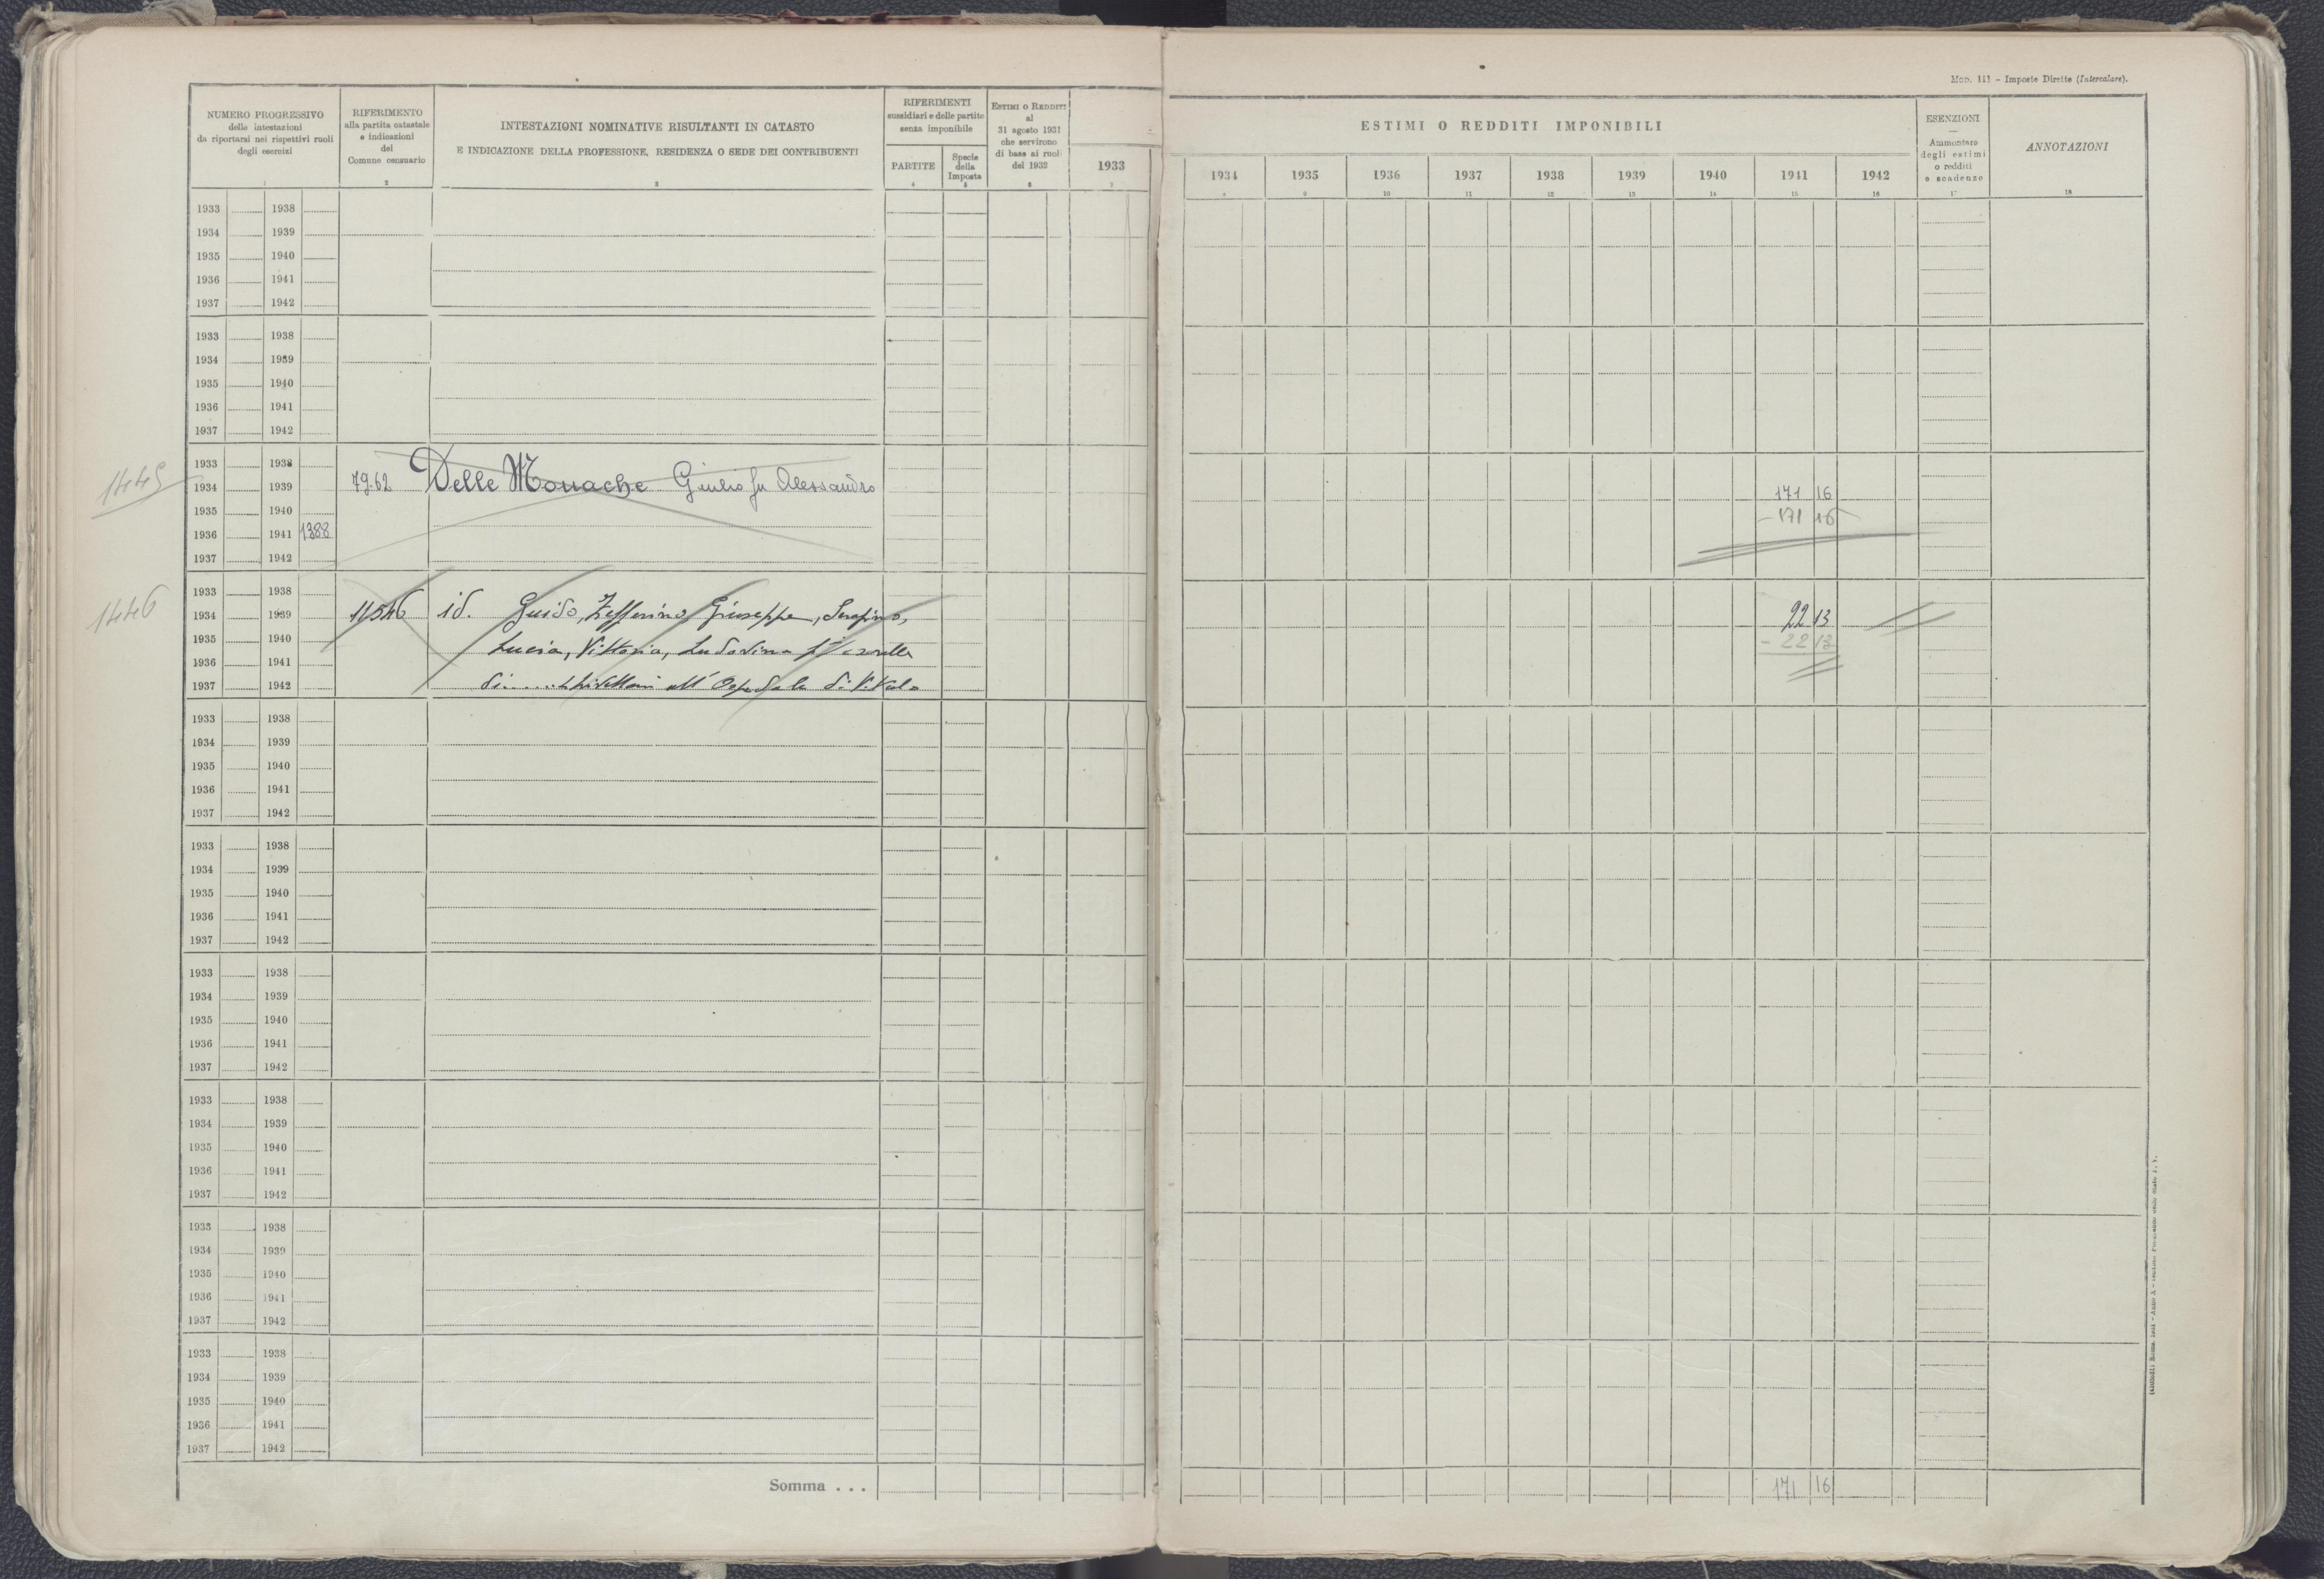 Mod. 111 - Imposte Dirette (Intercalare).
NUMERO PROGRESSIVO
delle intestazioni
da riportarsi nei rispettivi ruoli
degli esercizi
1
RIFERIMENTO
alla partita catastale
e indicazioni
del
Comune censuario
2
INTESTAZIONI NOMINATIVE RISULTANTI IN CATASTO
E INDICAZIONE DELLA PROFESSIONE, RESIDENZA O SEDE DEI CONTRIBUENTI
3
RIFERIMENTI
sussidiari e delle partite
senza imponibile
PARTITE
4
Specie
della
Imposta
5
ESTIMI O REDDITI
al
31 agosto 1931
che servirono
di base ai ruoli
del 1932
6
1933
7
ESTIMI O REDDITI IMPONIBILI
1934 1935 1936 1937 1938 1939 1940 1941 1942
8 9 10 11 12 13 14 15 16
ESENZIONI
—
Ammontare
degli estimi
o redditi
e scadenze
17
ANNOTAZIONI
18
1933 1938
1934 1939
1935 1940
1936 1941
1937 1942
1933 1938
1934 1939
1935 1940
1936 1941
1937 1942
1445
1933 1938
1934 1939 79.62 Delle Monache Giulio fu Alessandro 171 16
1935 1940 - 171 16
1936 1941 1388
1937 1942
1446
1933 1938
1934 1939 11546 id. Guido, Zefferino, Giuseppe, Serafino, 22 13
1935 1940 Lucia, Vittoria, - 22 13
1936 1941
1937 1942 all' Ospedale di
1933 1938
1934 1939
1935 1940
1936 1941
1937 1942
1933 1938
1934 1939
1935 1940
1936 1941
1937 1942
1933 1938
1934 1939
1935 1940
1936 1941
1937 1942
1933 1938
1934 1939
1935 1940
1936 1941
1937 1942
1933 1938
1934 1939
1935 1940
1936 1941
1937 1942
1933 1938
1934 1939
1935 1940
1936 1941
1937 1942
Somma . . . 171 16